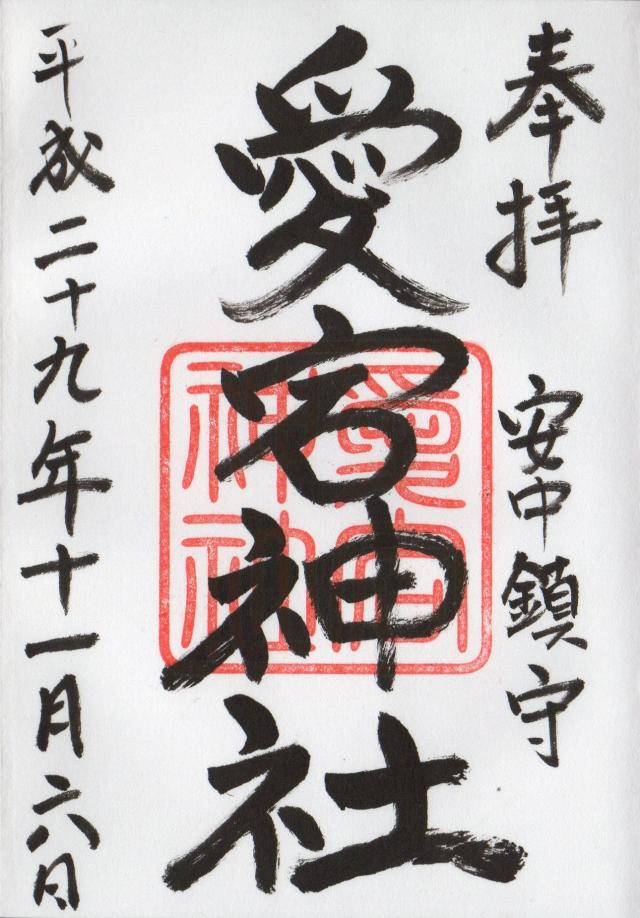 奉拝 安中鎮守
愛宕神社
愛宕
神社
平成二十九年十一月六日